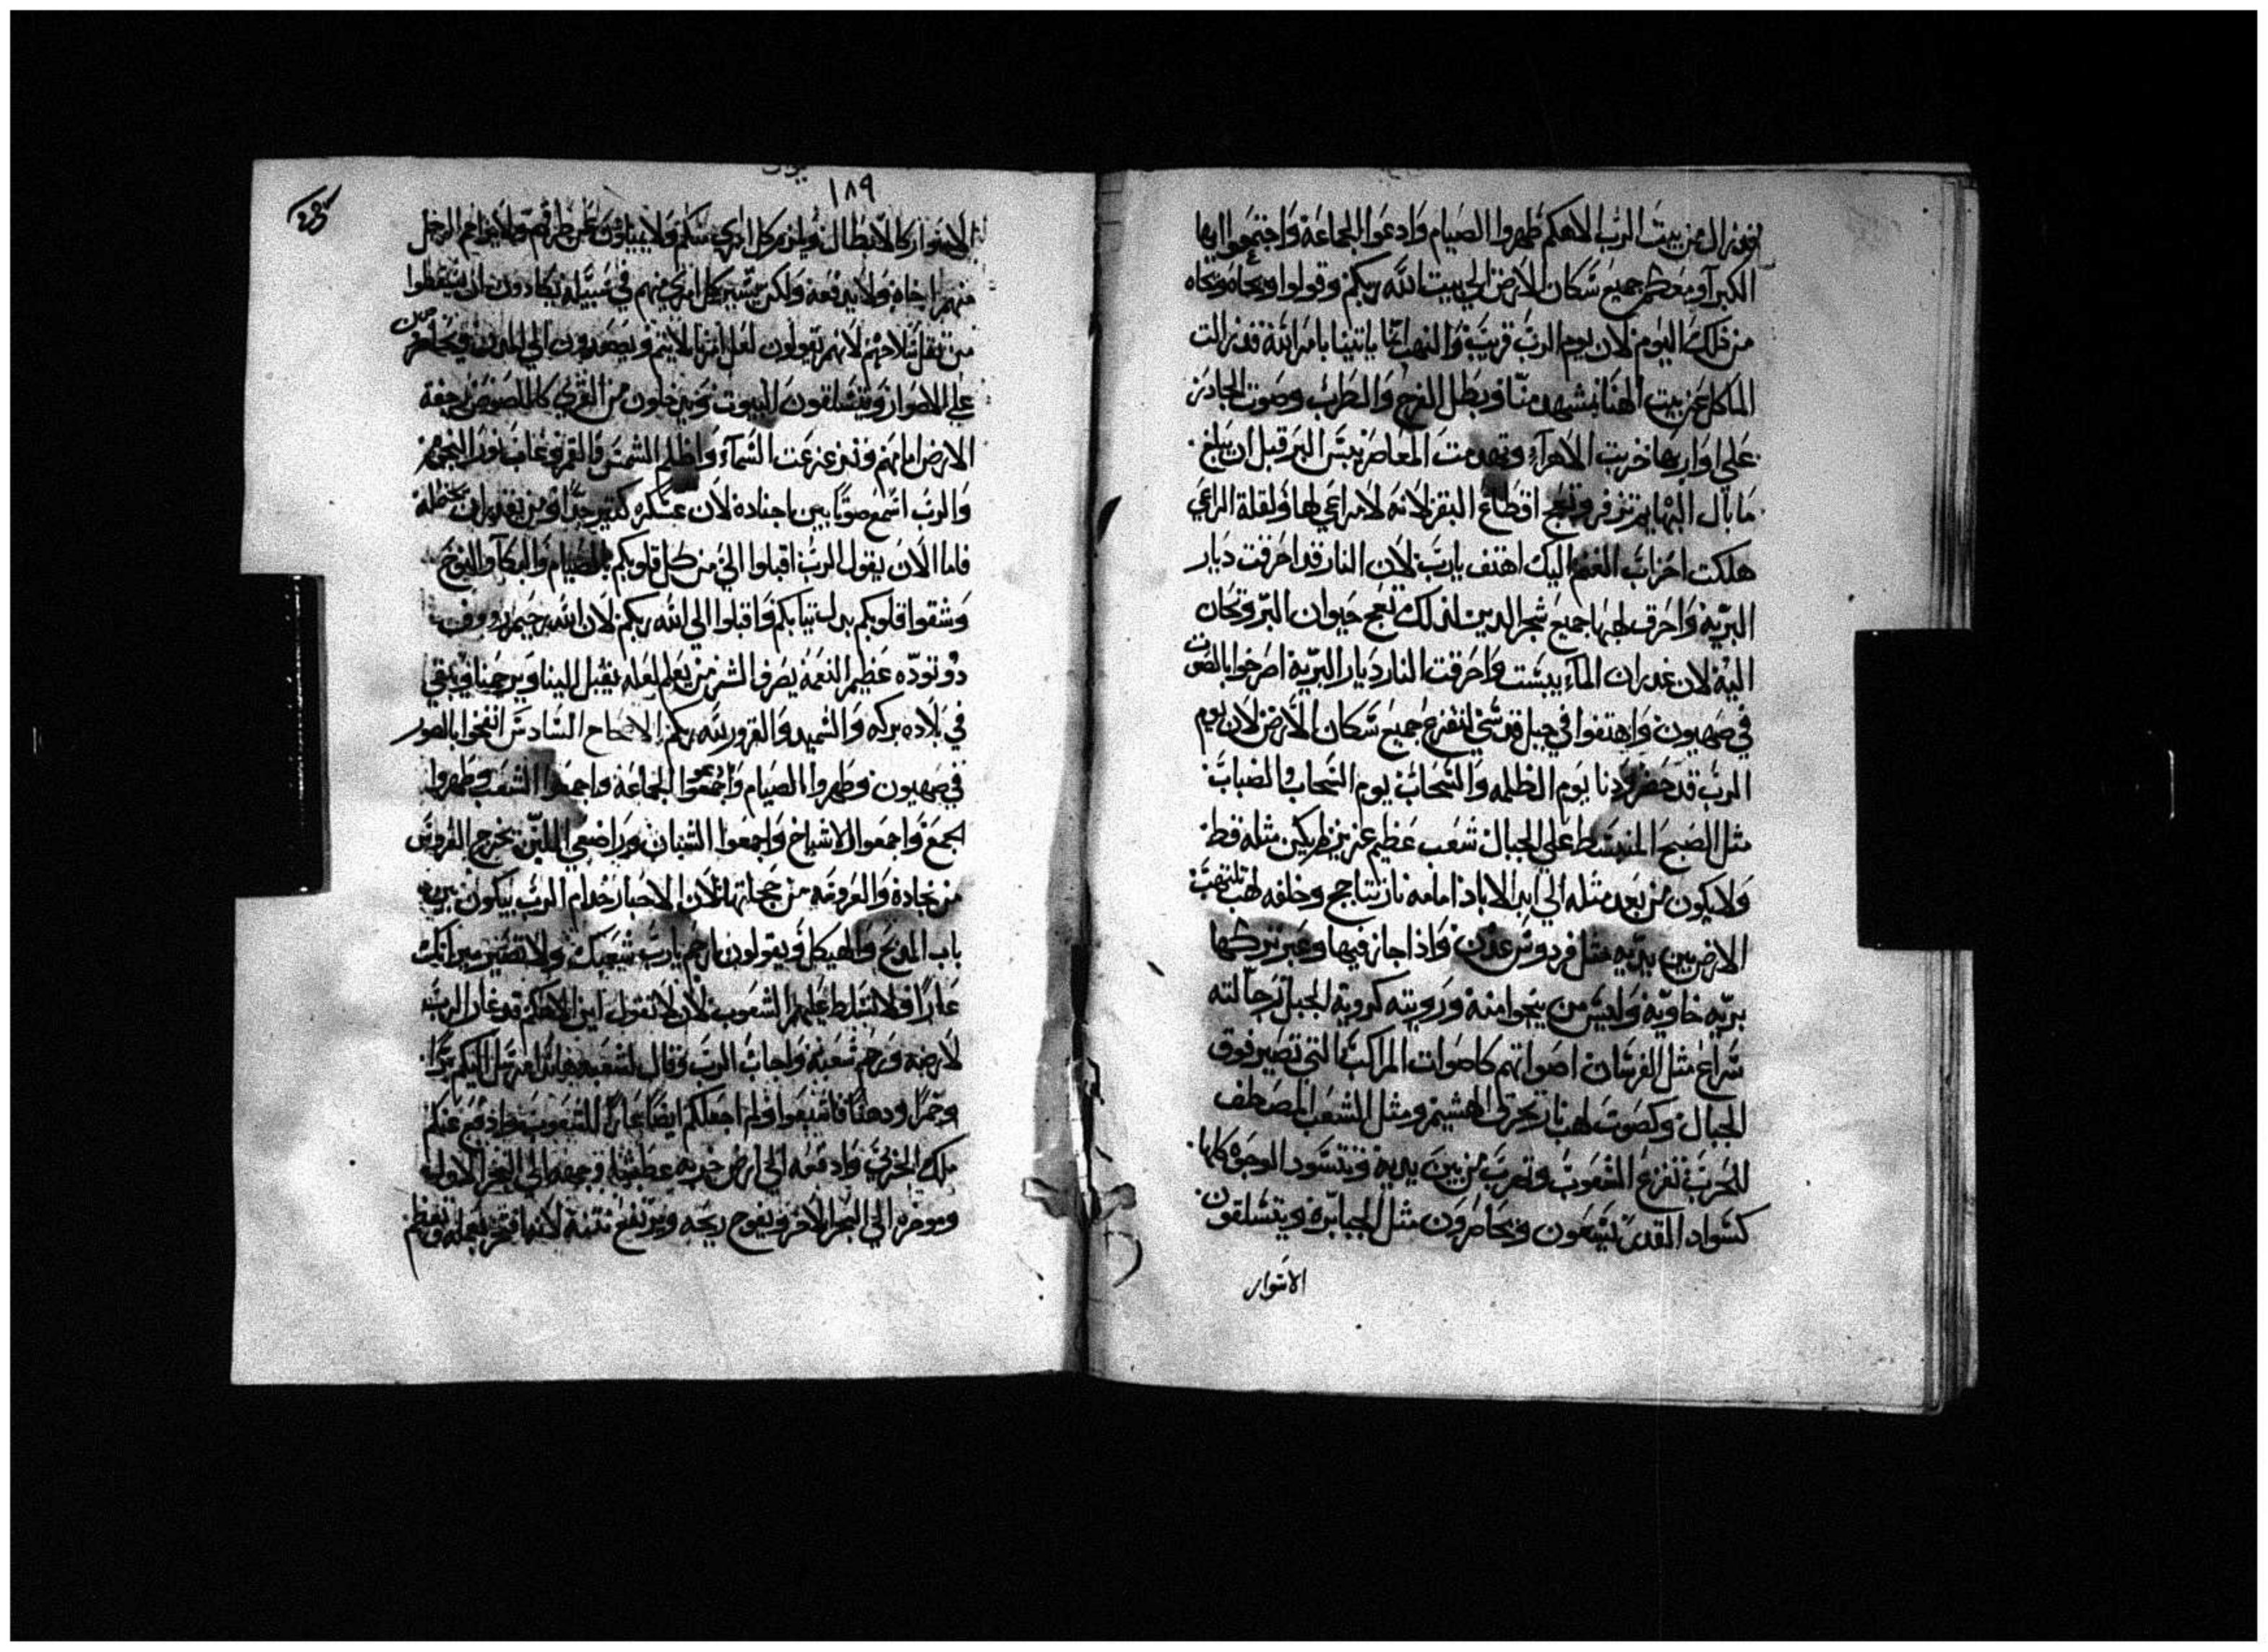 قد زال من بيت الرب الاهكم طهروا الصيام وادعوا الجماعة واجتمعوا ايها
الكبرآ ومعظم جميع سكان الارض الي بيت الله ربكم وقولوا ويحاه ويحاه
من ذلك اليوم لان يوم الرب قريب والنهب ياتينا بامر الله قد زالت
الماكل عن بيت الهنا بمشهد منا وبطل الفرح والطرب وصوت الجادر
علي اواريها خربت الاهرآء وتهدمت المعاصر يبس البر قبل ان يبلغ
ما بال البهايم تزفر وتعج اقطاع البقر لانه لا مراعي لها ولقلة الراعي
هلكت احزاب الغنم اليك اهتف يا رب لان النار قد احرقت ديار
البرية واحرق لهبها جميع شجر الدير لذلك تعج حيوان البر وتحان
اليه لان غدران المآء يبست واحرقت النار ديار البرية اصرخوا بالصوت
في صهيون واهتفوا في جبل قدسي لتفزع جميع سكان الارض لان يوم
الرب قد حضر ودنا يوم الظلمه والسحاب يوم السحاب والضباب
مثل الصبح المنبسط علي الجبال شعب عظيم عزيز لم يكن مثله قط
ولا يكون من بعد مثله الي ابد الاباد امامه نار تتاجج وخلفه لهب تلتهب
الارض بين يديه مثل فردوس عدن واذا جاز فيها وعبر تركها
بريه خاويه وليس من ينجوا منه ورويته كروية الجبل رجالته
سراع مثل الفرسان اصواتهم كاصوات المراكب التي تصير فوق
الجبال وكصوت لهب نار تحرق الهشيم ومثل الشعب المصطف
للحرب تفزع الشعوب وتهرب من بين يديه وتسود الوجوه كلها
كسواد القدر يسعون ويحاضرون مثل الجبابره ويتسلقون
الاسوار
١٨٩
الاسوار كالابطال ويلزم كل امري منكم ولا يميلون عن طرقهم ولا يزاحم الرجل
منهم اخاه ولا يدفعه ولكن يسير كل امري منهم في سبيله يكادون ان يسقطوا
من ثقل سلاحهم لانهم يقولون لعل ويصعدون الي المدن ويحاضرون
علي الاصوار ويتسلقون البيوت ويدخلون من القري كاللصوص رجفة
الارض امامهم وتزعزعت السمآء واظلم الشمس والقمر وغاب نور النجوم
والرب اسمع صوته بين اجناده لان عسكره كثير جدا ومن يقدر ان يحتمله
فاما الان يقول الرب اقبلوا الي من كل قلوبكم بالصيام والبكآ والنوح
وشقوا قلوبكم بدل ثيابكم واقبلوا الي الله ربكم لان الله رحيم رووف
ذو تودّه عظيم النعمة يصرف الشر من يعلم لعله يقبل الينا ويرحمنا ويبقي
في بلاده بركه والسميد والقرور لله ربكم الاصحاح السادس انفخوا بالصور
في صهيون وطهروا الصيام وادعوا الجماعة واجمعوا الشعب وطهروا
الجمع واجمعوا الاشياخ واجمعوا الشبان وراضعي اللبن يخرج العروس
من خبايه والعروسه من حجلتها لان الاحبار خدام الرب يبكون بين
باب المدبح والهيكل ويقولون ارحم يارب شعبك ولا تصير ميراثك
عارا ولا تسلط عليهم الشعوب لان لا تقول اين الاهكم قد غار الرب
لارضه ورحم شعبه واجاب الرب وقال لشعبه هانذا مرسل اليكم برا
وخمرا ودهنا فاشبعوا ولم اجعلكم ايضا عارا للشعوب وادفع عنكم
ملك الحربي وادفعه الي ارض خربه عطشه وجهه الي البحر الاول
ووخره الي البحر الاخر ويفوح ريحه ويرتفع نتنه لانها فخر بعمله وتعظم